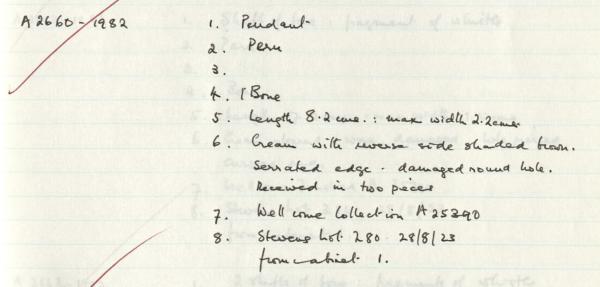 A 2660 - 1982
1. Pendant
2. Peru
3.
4. 1 Bone
5. Length 8.2 cms. : max width 2.2 cms.
6. Cream with reverse side shaded brown.
Serrated edge - damaged round hole.
Received in two pieces
7. Wellcome Collection A 25390
8. Stevens Lot 280 . 28/8/23
from cabinet 1.